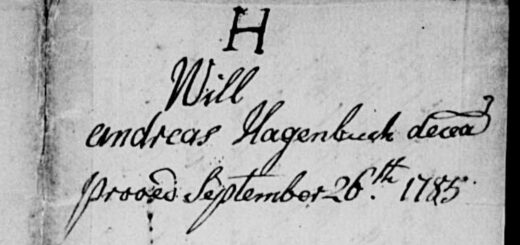 H
Will
andreas Hagenbuch decead
prooed September 26.th 1785